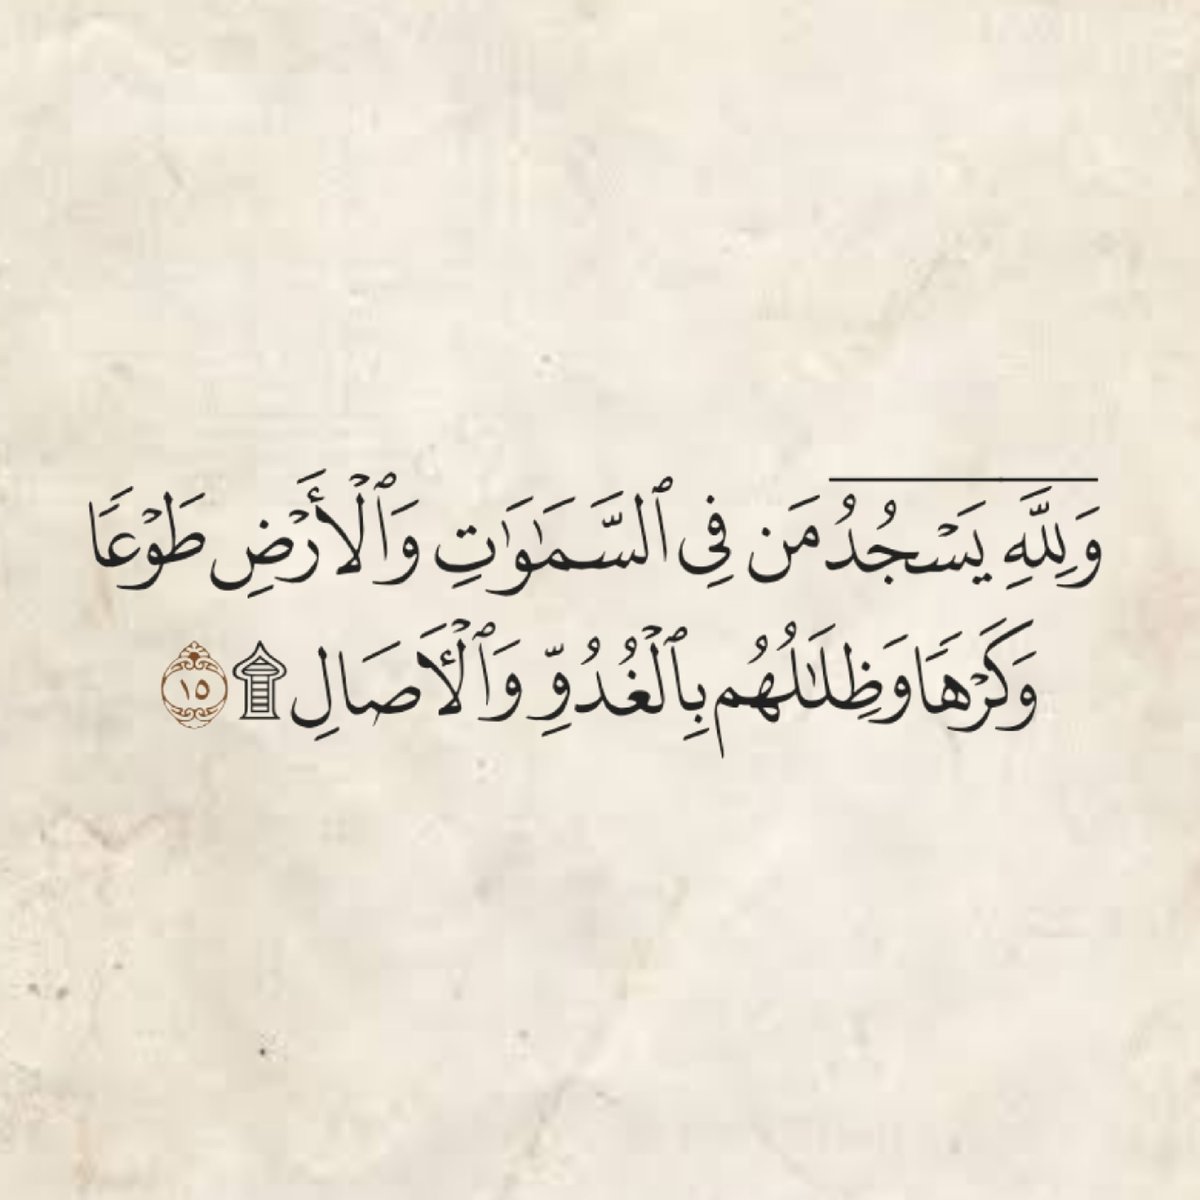 وَلِلَّهِ يَسْجُدُ مَن فِى ٱلسَّمَٰوَٰتِ وَٱلْأَرْضِ طَوْعًا
وَكَرْهًا وَظِلَٰلُهُم بِٱلْغُدُوِّ وَٱلْـَٔاصَالِ ۩ ١٥